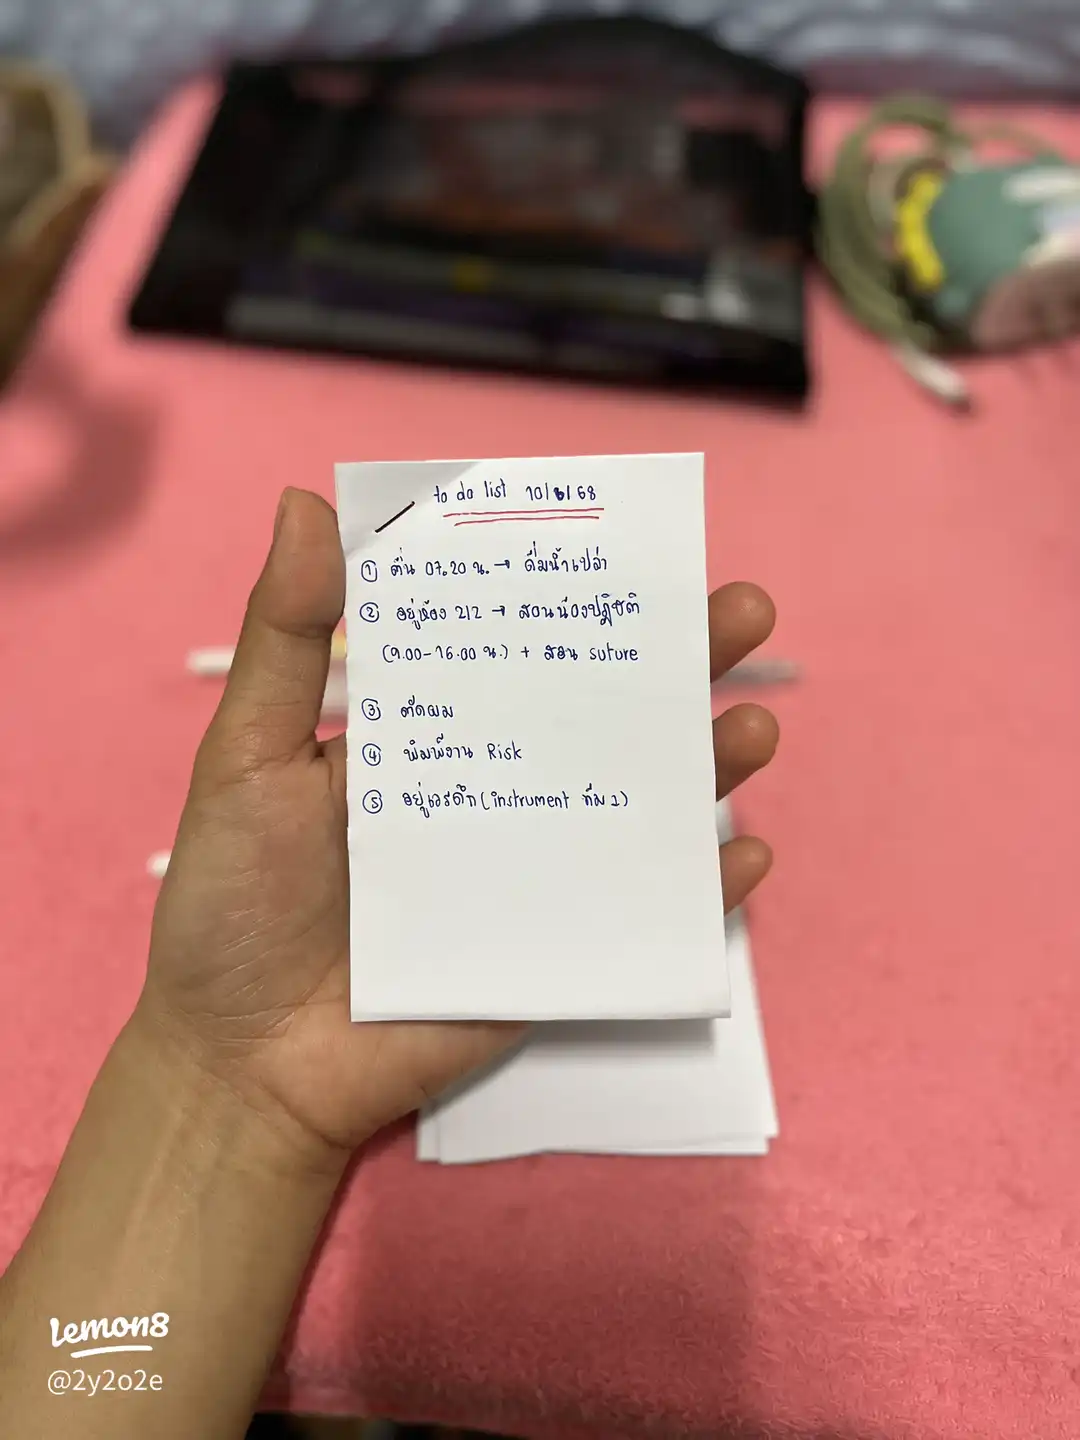 to do list 10/6/68
① ตื่น 07.20 น. → ดื่มน้ำเปล่า
② อยู่ห้อง 212 → สอนน้องปฏิบัติ
(9.00-16.00 น.) + สอน suture
③ ตัดผม
④ พิมพ์งาน Risk
⑤ อยู่เวรดึก (instrument ทีม 1)
Lemon8
@2y2o2e